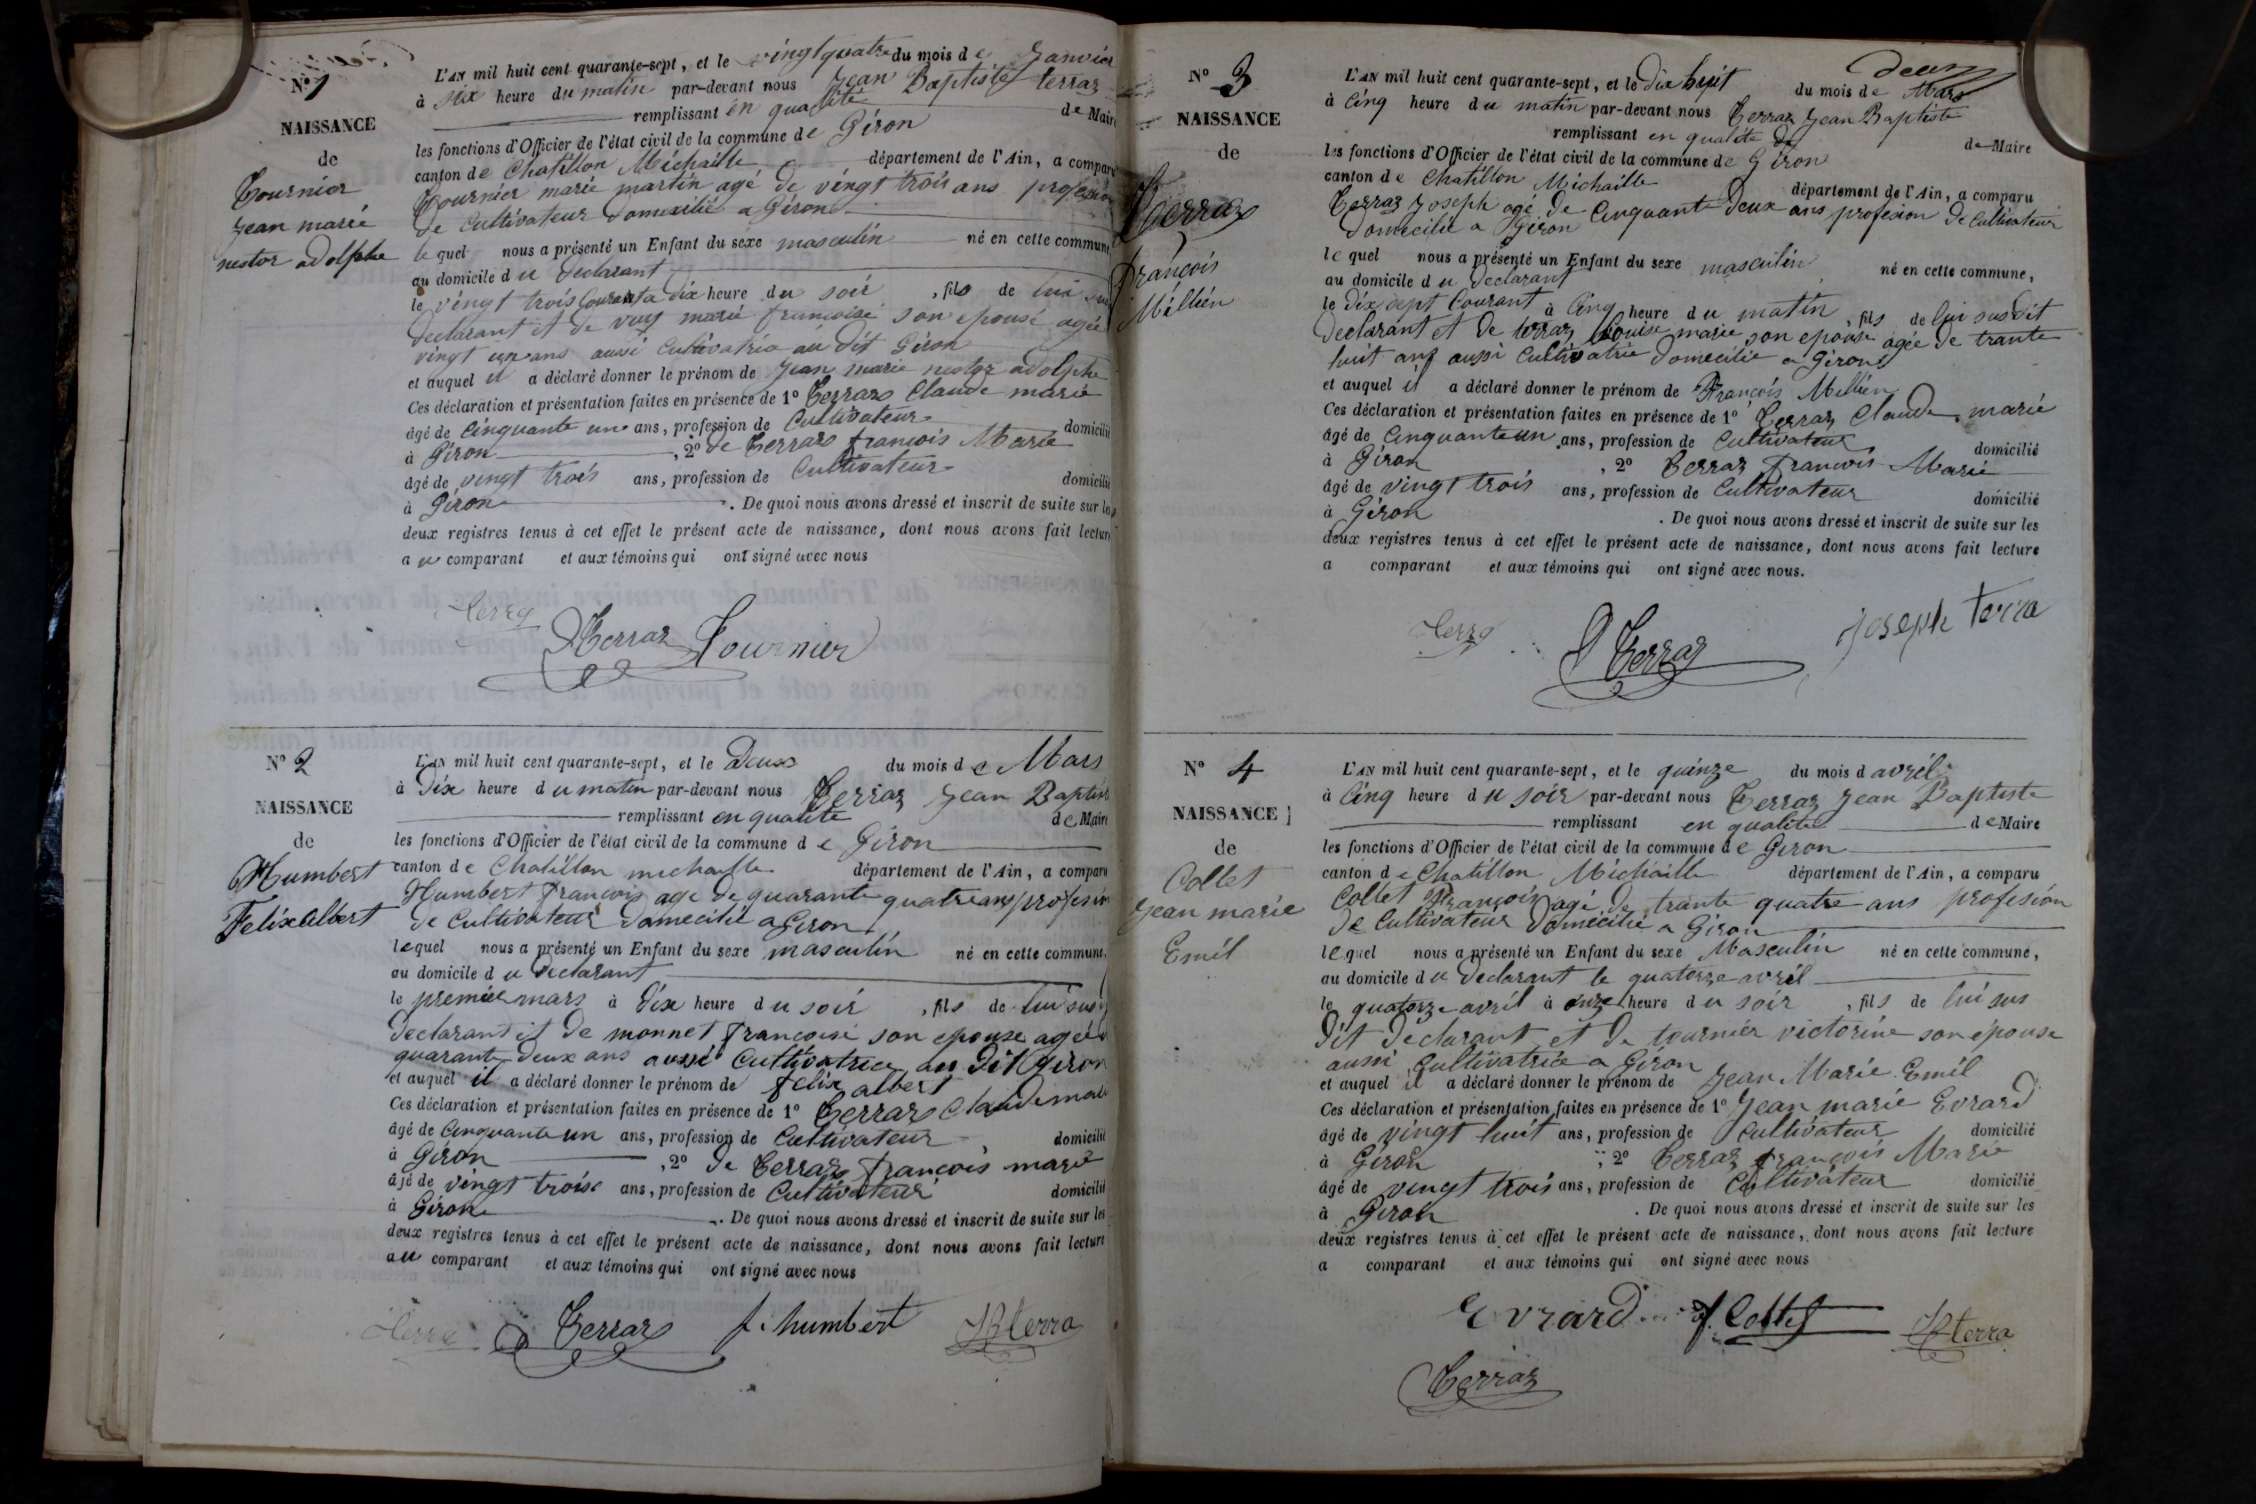 N° 1
NAISSANCE
de
Tournier
jean marie
nestor adolphe
L'AN mil huit cent quarante-sept, et le vingt quatre du mois de Janvier
à six heure du matin par-devant nous Jean Baptiste terraz
remplissant en qualité de Maire
les fonctions d'Officier de l'état civil de la commune de Giron
canton de Chatillon Michaille département de l'Ain, a comparu
Tournier marie martin agé de vingt trois ans profession
de cultivateur domicilié a Giron
lequel nous a présenté un Enfant du sexe masculin né en cette commune
au domicile du declarant
le vingt trois courant a dix heure du soir, fils de lui sus
declarant et de marie francoise son epouse agée
vingt un ans aussi cultivatrice au dit Giron
et auquel il a déclaré donner le prénom de jean marie nestor adolphe
Ces déclaration et présentation faites en présence de 1° Terraz Claude marie
âgé de cinquante un ans, profession de Cultivateur domicilié
à Giron, 2° de Terraz francois Marie
âgé de vingt trois ans, profession de Cultivateur domicilié
à Giron. De quoi nous avons dressé et inscrit de suite sur les
deux registres tenus à cet effet le présent acte de naissance, dont nous avons fait lecture
au comparant et aux témoins qui ont signé avec nous
Terra Terraz Tournier
N° 2
NAISSANCE
de
Humbert
Felix albert
L'AN mil huit cent quarante-sept, et le Deux du mois de Mars
à dix heure du matin par-devant nous Terraz Jean Baptiste
remplissant en qualité de Maire
les fonctions d'Officier de l'état civil de la commune de Giron
canton de Chatillon michaille département de l'Ain, a comparu
Humbert francois age de quarante quatre ans profesion
de Cultivateur domecilié a Giron
lequel nous a présenté un Enfant du sexe masculin né en cette commune,
au domicile du declarant
le premier mars à dix heure du soir, fils de lui sus
declarant et de monnet francoise son epouse agée
quarante deux ans aussi cultivatrice au dit Giron
et auquel il a déclaré donner le prénom de felix albert
Ces déclaration et présentation faites en présence de 1° Terraz Claude marie
âgé de Cinquante un ans, profession de Cultivateur domicilié
à Giron, 2° de Terraz francois marie
âgé de vingt trois ans, profession de Cultivateur domicilié
à Giron. De quoi nous avons dressé et inscrit de suite sur les
deux registres tenus à cet effet le présent acte de naissance, dont nous avons fait lecture
au comparant et aux témoins qui ont signé avec nous
Terraz f. humbert JB terra
deux
N° 3
NAISSANCE
de
Terraz
françois
Millien
L'AN mil huit cent quarante-sept, et le dix huit du mois de Mars
à Cinq heure du matin par-devant nous Terraz Jean Baptiste
remplissant en qualité de de Maire
les fonctions d'Officier de l'état civil de la commune de Giron
canton de Chatillon Michaille département de l'Ain, a comparu
Terraz Joseph agé de Cinquante deux ans profesion de Cultivateur
domecilié a Giron
lequel nous a présenté un Enfant du sexe masculin né en cette commune,
au domicile du declarant
le dix sept Courant à Cinq heure du matin, fils de lui sus dit
declarant et de terraz Louise marie son epouse agée de trante
huit ans aussi Cultivatrice domecilié a Giron
et auquel il a déclaré donner le prénom de François Millien
Ces déclaration et présentation faites en présence de 1° Terraz Claude marie
âgé de Cinquante un ans, profession de Cultivateur domicilié
à Giron, 2° Terraz francois Marie
âgé de vingt trois ans, profession de Cultivateur domicilié
à Giron. De quoi nous avons dressé et inscrit de suite sur les
deux registres tenus à cet effet le présent acte de naissance, dont nous avons fait lecture
a comparant et aux témoins qui ont signé avec nous.
Terra Terraz joseph terra
N° 4
NAISSANCE
de
Collet
Jean marie
Emil
L'AN mil huit cent quarante-sept, et le quinze du mois d avril
à Cinq heure du soir par-devant nous Terraz Jean Baptiste
remplissant en qualité de Maire
les fonctions d'Officier de l'état civil de la commune de Giron
canton de Chatillon Michaille département de l'Ain, a comparu
Collet François agé de trante quatre ans profesion
de Cultivateur domicilié a Giron
lequel nous a présenté un Enfant du sexe Masculin né en cette commune,
au domicile du declarant le quatorze avril
le quatorze avril à onze heure du soir, fils de lui sus
dit declarant et de tournier victorine son épouse
aussi Cultivatrice a Giron
et auquel il a déclaré donner le prénom de Jean Marie Emil
Ces déclaration et présentation faites en présence de 1° Jean marie Evrard
âgé de vingt huit ans, profession de Cultivateur domicilié
à Giron, 2° Terraz françois Marie
âgé de vingt trois ans, profession de Cultivateur domicilié
à Giron. De quoi nous avons dressé et inscrit de suite sur les
deux registres tenus à cet effet le présent acte de naissance, dont nous avons fait lecture
a comparant et aux témoins qui ont signé avec nous
Evrard f. Collet JB terra
Terraz